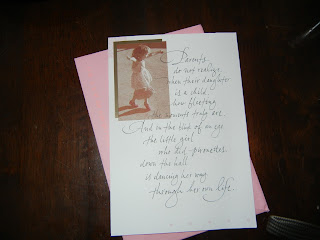 Parents
do not realize
when their daughter
is a child
how fleeting
the moments truly are.
And in the blink of an eye
the little girl
who did pirouettes
down the hall
is dancing her way
through her own life.